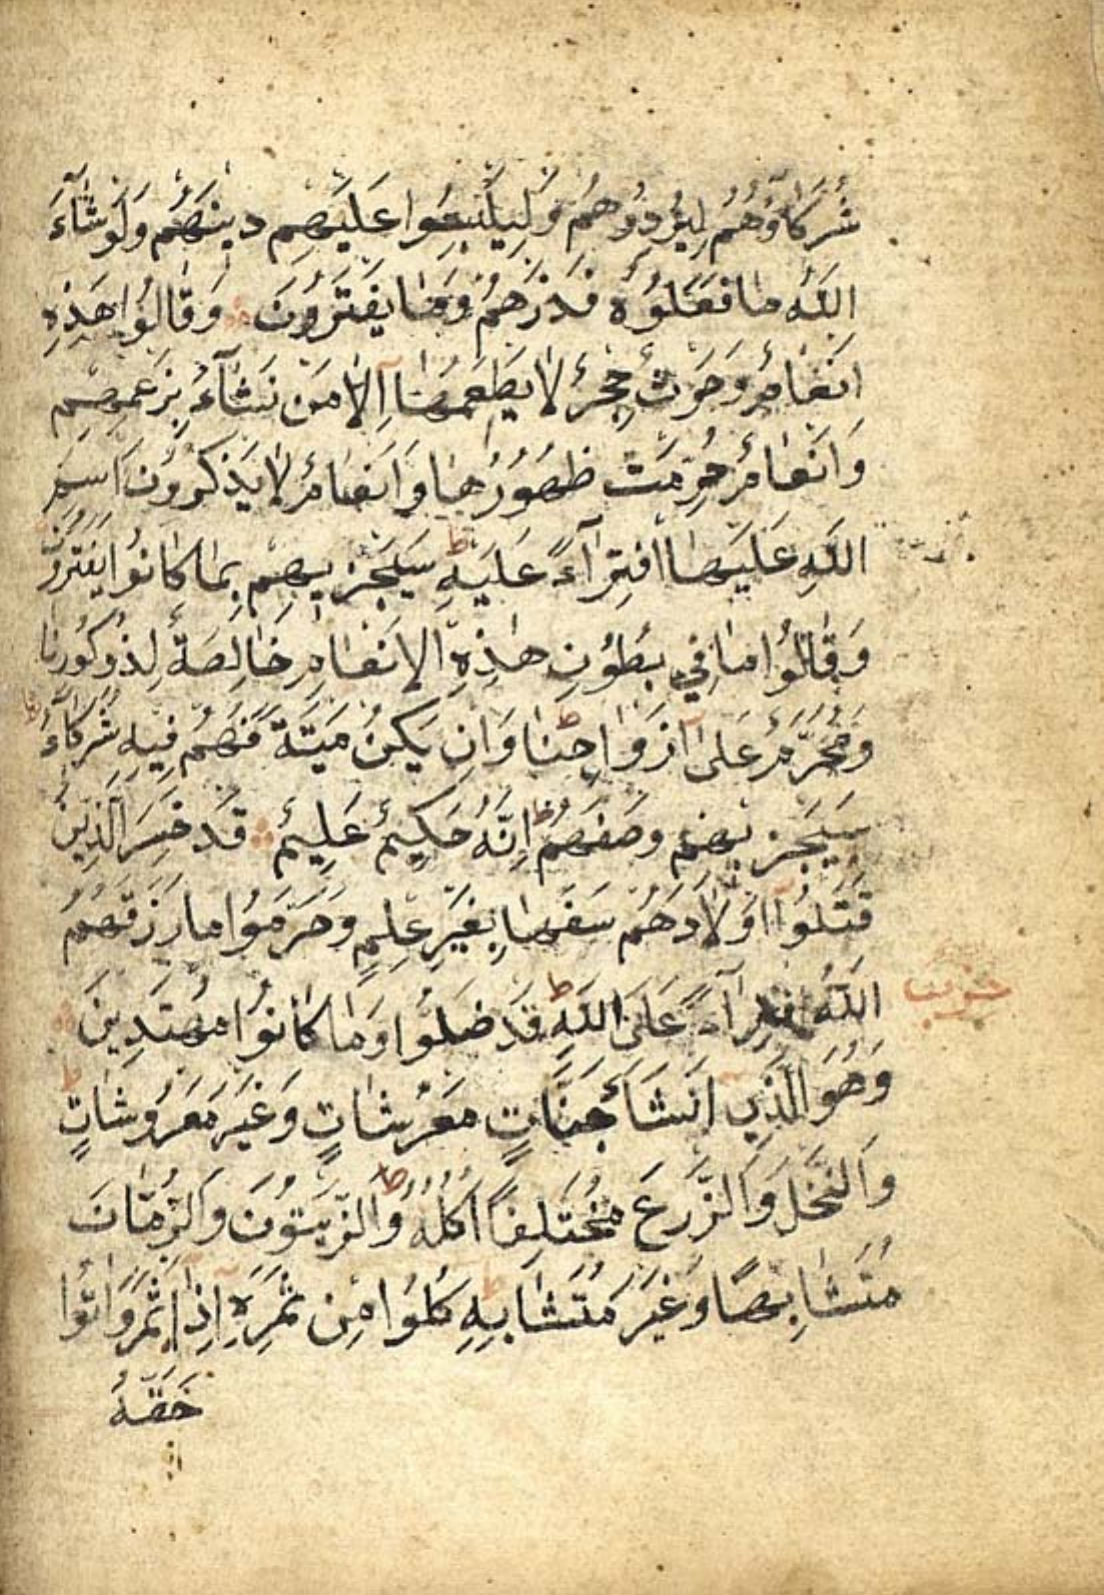 شُرَكَاؤُهُمْ لِيُرْدُوهُمْ وَلِيَلْبِسُوا عَلَيْهِمْ دِينَهُمْ وَلَوْ شَآءَ
اللَّهُ مَا فَعَلُوهُ فَذَرْهُمْ وَمَا يَفْتَرُونَ وَقَالُوا هَذِهِ
اَنْعَامٌ وَحَرْثٌ حِجْرٌ لَا يَطْعَمُهَا اِلَّا مَنْ نَشَآءُ بِزَعْمِهِمْ
وَاَنْعَامٌ حُرِّمَتْ ظُهُورُهَا وَاَنْعَامٌ لَا يَذْكُرُونَ اسْمَ
اللَّهِ عَلَيْهَا افْتِرَآءً عَلَيْهِ ط سَيَجْزِيهِمْ بِمَا كَانُوا يَفْتَرُونَ
وَقَالُوا مَا فِي بُطُونِ هٰذِهِ الْاَنْعَامِ خَالِصَةٌ لِذُكُورِنَا
وَمُحَرَّمٌ عَلٰى اَزْوَاجِنَا ط وَاِنْ يَكُنْ مَيْتَةً فَهُمْ فِيهِ شُرَكَآءُ ط
سَيَجْزِيهِمْ وَصْفَهُمْ ط اِنَّهُ حَكِيمٌ عَلِيمٌ قَدْ خَسِرَ الَّذِينَ
قَتَلُوا اَوْلَادَهُمْ سَفَهًا بِغَيْرِ عِلْمٍ وَحَرَّمُوا مَا رَزَقَهُمُ
اللَّهُ افْتِرَآءً عَلَى اللَّهِ ط قَدْ ضَلُّوا وَمَا كَانُوا مُهْتَدِينَ
وَهُوَ الَّذِي اَنْشَاَ جَنَّاتٍ مَعْرُشَاتٍ وَغَيْرَ مَعْرُوشَاتٍ ط
وَالنَّخْلَ وَالزَّرْعَ مُخْتَلِفًا اُكُلُهُ ط وَالزَّيْتُونَ وَالرُّمَّانَ
مُتَشَابِهًا وَغَيْرَ مُتَشَابِهٍ ط كُلُوا مِنْ ثَمَرِهِ اِذَا اَثْمَرَ وَاٰتُوا
حَقَّهُ